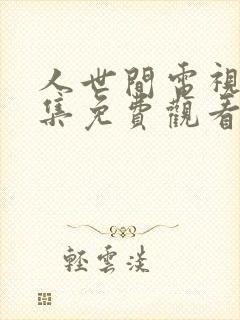 人世間電視
集免費觀看
輕雲淡